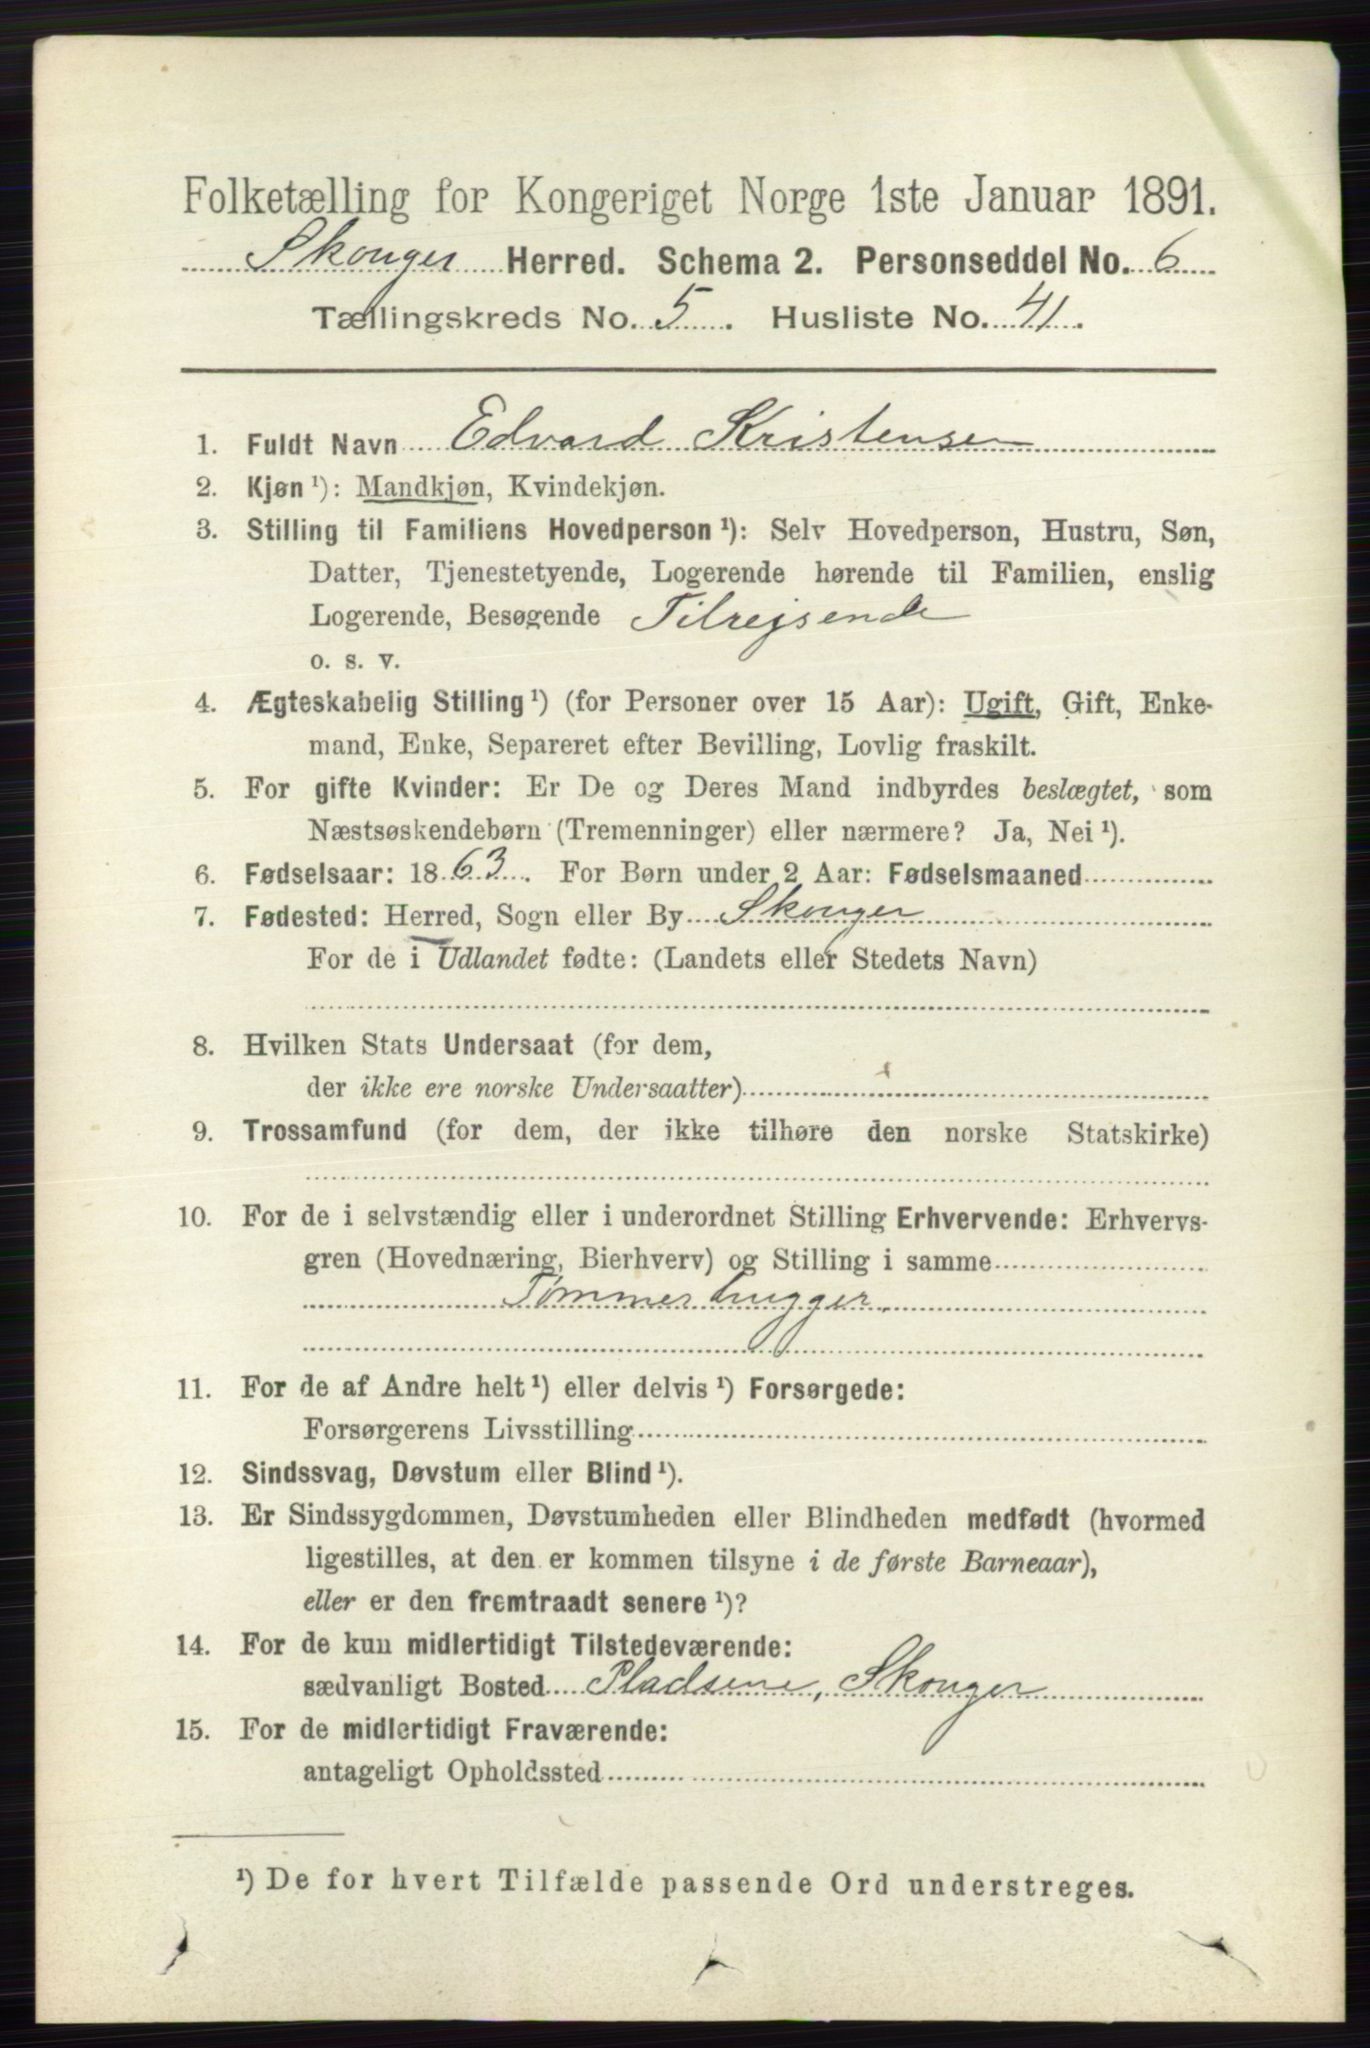 Folketælling for Kongeriget Norge 1ste Januar 1891.
Skouger Herred. Schema 2. Personseddel No. 6
Tællingskreds No. 5. Husliste No. 41.
1. Fuldt Navn Edvard Kristensen
2. Kjøn ¹): Mandkjøn, Kvindekjøn.
3. Stilling til Familiens Hovedperson ¹): Selv Hovedperson, Hustru, Søn,
Datter, Tjenestetyende, Logerende hørende til Familien, enslig
Logerende, Besøgende Tilrejsende
o. s. v.
4. Ægteskabelig Stilling ¹) (for Personer over 15 Aar): Ugift, Gift, Enke-
mand, Enke, Separeret efter Bevilling, Lovlig fraskilt.
5. For gifte Kvinder: Er De og Deres Mand indbyrdes beslægtet, som
Næstsøskendebørn (Tremenninger) eller nærmere? Ja, Nei ¹).
6. Fødselsaar: 1863. For Børn under 2 Aar: Fødselsmaaned
7. Fødested: Herred, Sogn eller By Skouger
For de i Udlandet fødte: (Landets eller Stedets Navn)
8. Hvilken Stats Undersaat (for dem,
der ikke ere norske Undersaatter)
9. Trossamfund (for dem, der ikke tilhøre den norske Statskirke)
10. For de i selvstændig eller i underordnet Stilling Erhvervende: Erhvervs-
gren (Hovednæring, Bierhverv) og Stilling i samme
Tømmerhugger.
11. For de af Andre helt ¹) eller delvis ¹) Forsørgede:
Forsørgerens Livsstilling
12. Sindssvag, Døvstum eller Blind ¹).
13. Er Sindssygdommen, Døvstumheden eller Blindheden medfødt (hvormed
ligestilles, at den er kommen tilsyne i de første Barneaar),
eller er den fremtraadt senere ¹)?
14. For de kun midlertidigt Tilstedeværende:
sædvanligt Bosted Pladsene, Skouger
15. For de midlertidigt Fraværende:
antageligt Opholdssted
¹) De for hvert Tilfælde passende Ord understreges.